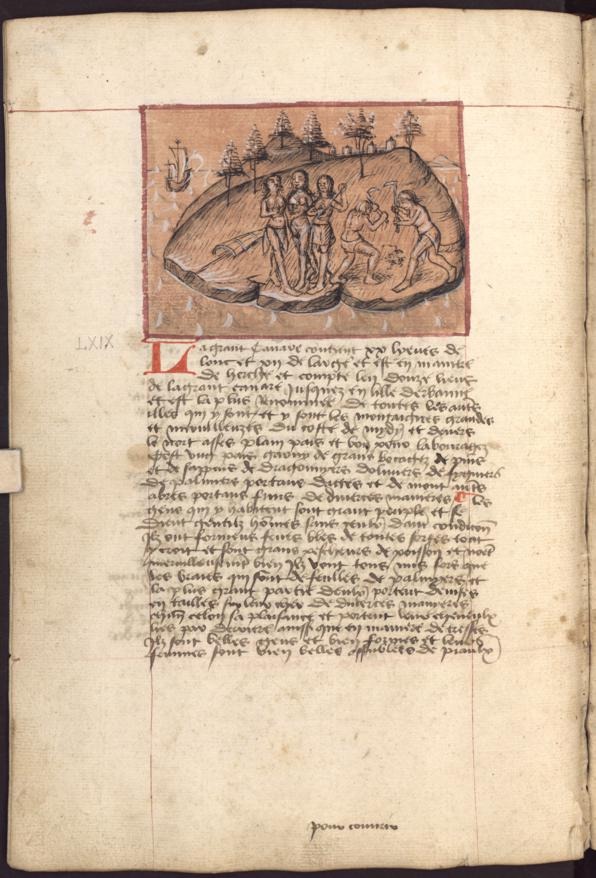 LXIX
La grant Canare contient xx lyeues de
lonc et xii de large et est en maniere
de herche et compte len douze lieues
de la grant canare jusques en lille derbanne
et est la plus renommee de toutes les autres
illes qui y sont et y sont les montaignes grandes
et merveilleuzes du coste de mydy et devers
le nort asses plain pais et bon pour labourages
Cest ung pais garny de grans bocages de pins
et de sappins de dragonniers doliviers de fyguiers
de palmiers portans dattes et de mont aultres
abres portans fruis de diverces manieres Les
gens qui y habitent sont grant peuple et se
dient gentilz hommes sans ceulx daut condicion
Ilz ont fourment feves bles de toutes sortes tout
y croit et sont grans pescheurs de poisson et noent
merveilleusement bien Ilz vont tous nus fors que
des braies qui sont de feulles de palmyers et
la plus grant partie deulx portent devises
en taillees sur leur cher de diverces manyeres
chun celon sa plaisance et portent leurs cheveulx
lies par derriere ainssi que en maniere de tresses
Ilz sont belles gens et bien formes et leurs
femmes sont bien belles affublees de peaulx
pour couvrir